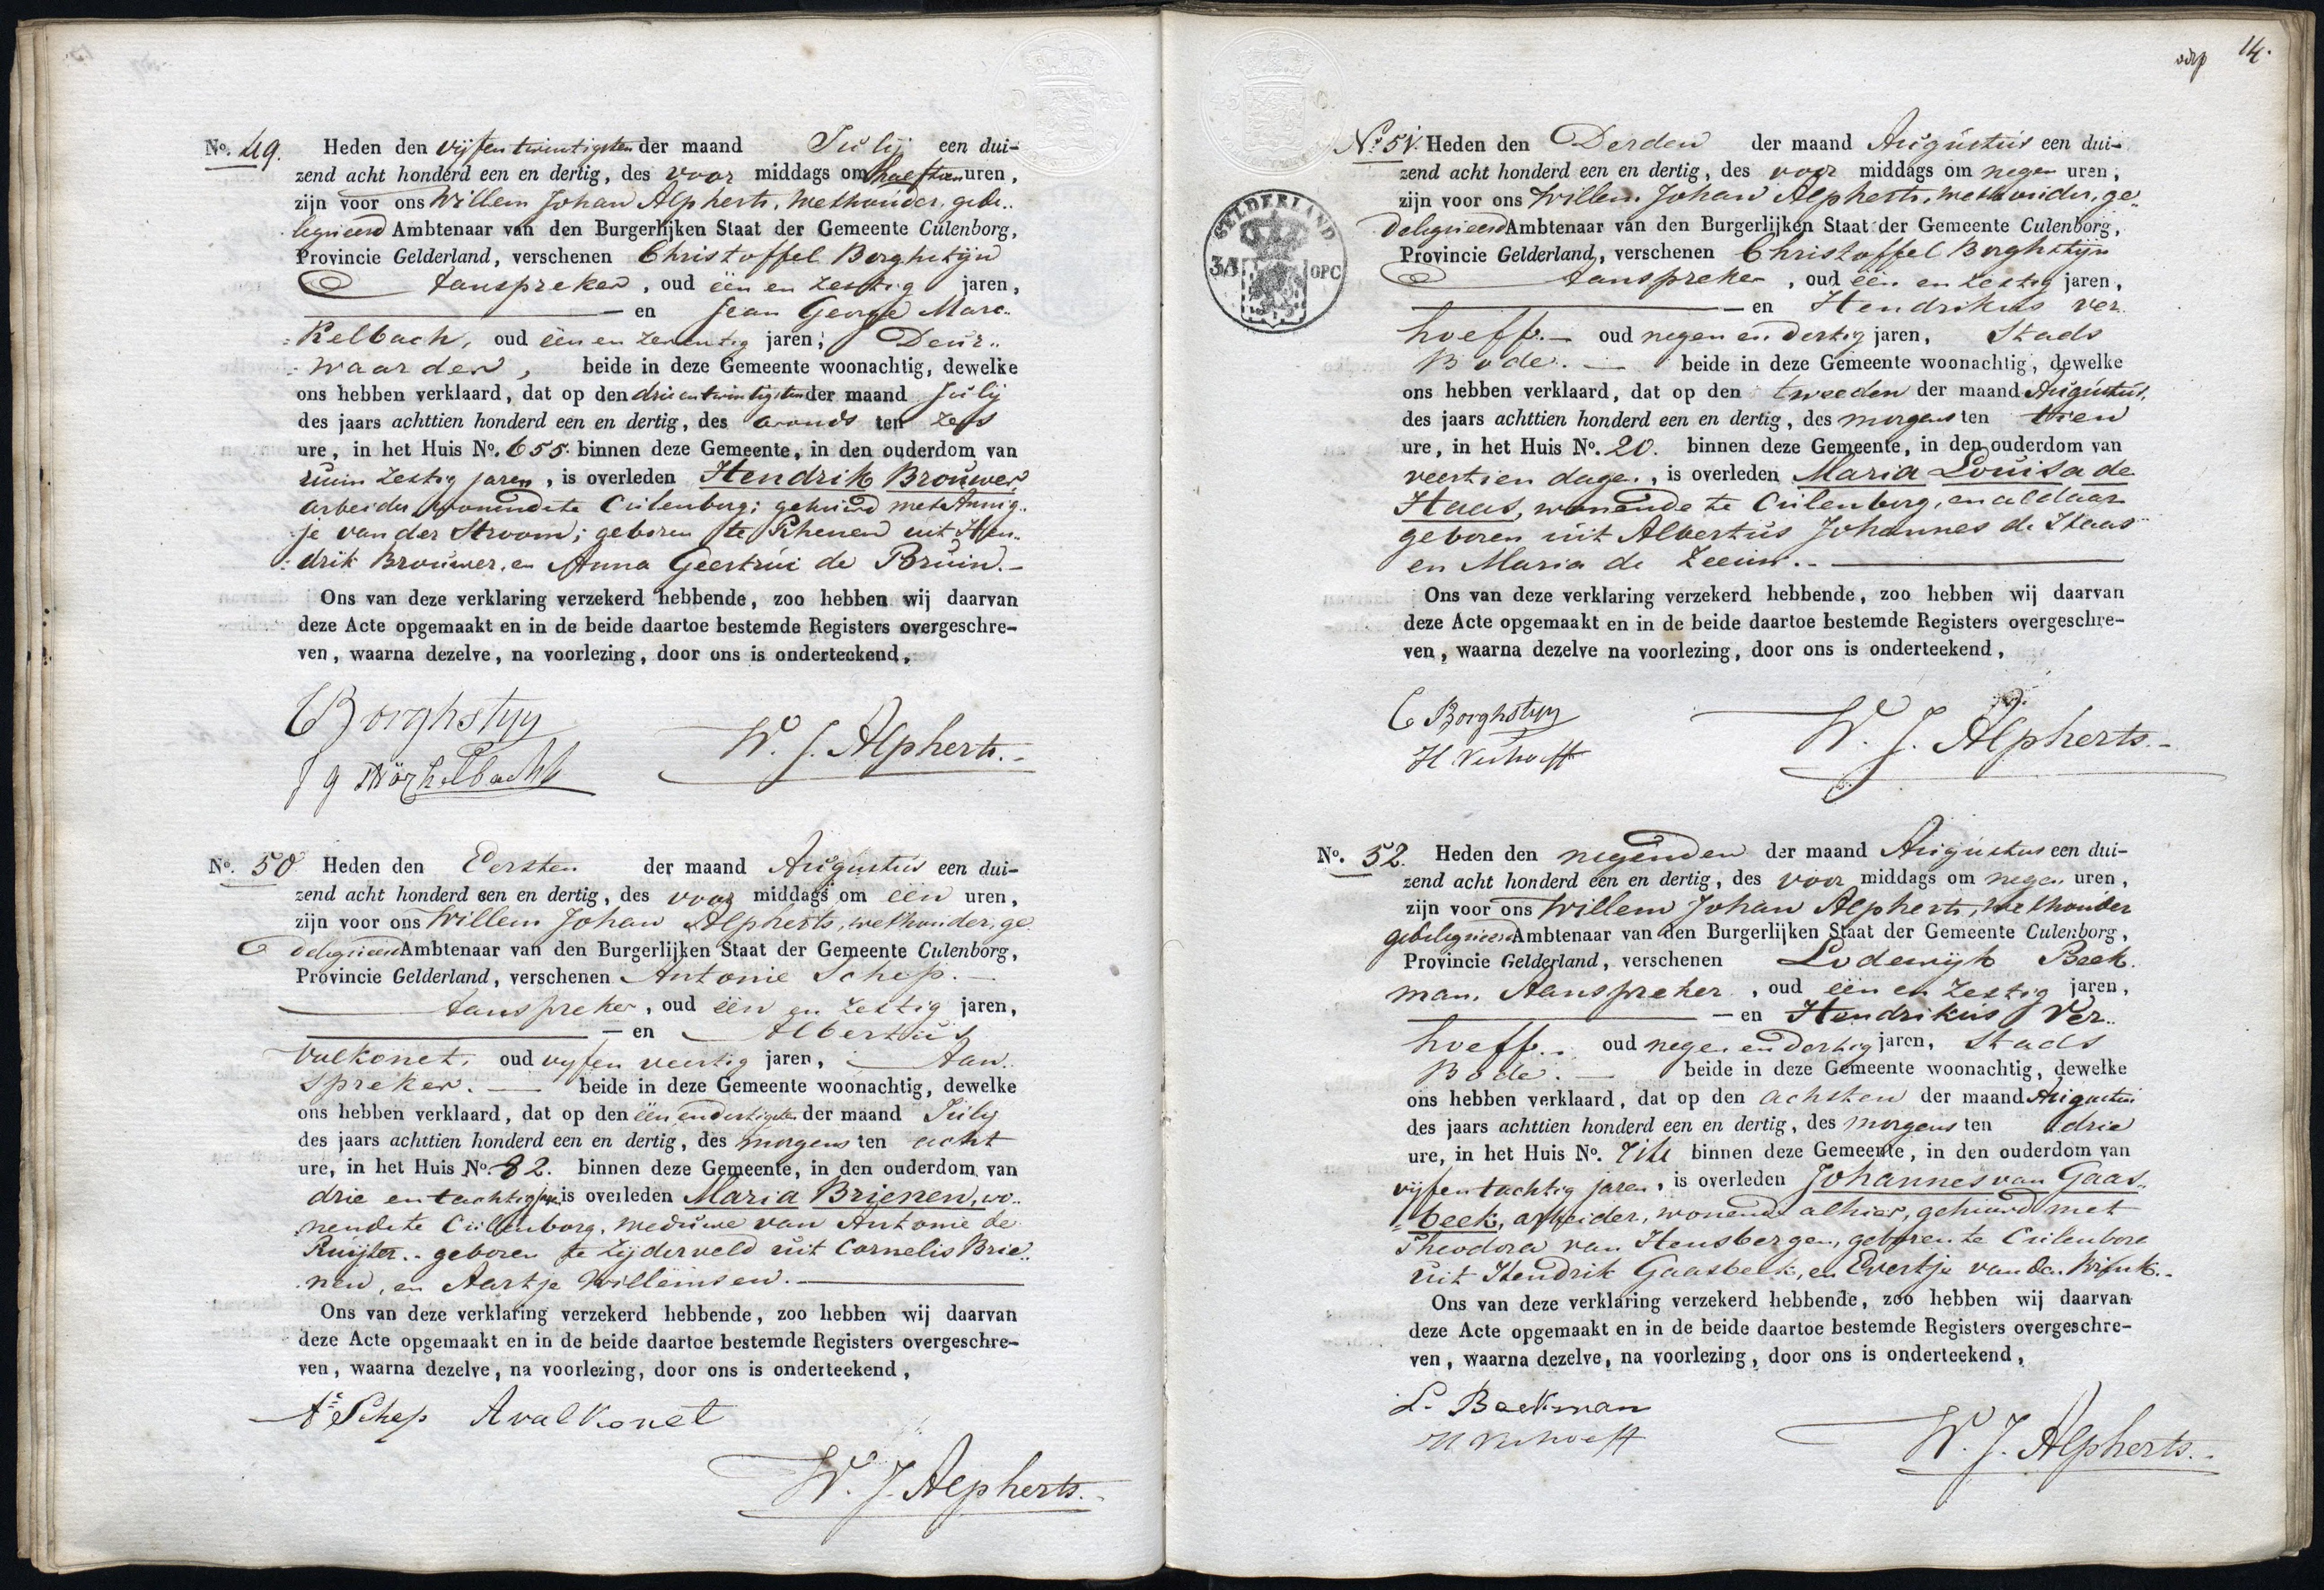 No. 49. Heden den vijfentwintigsten der maand Julij een dui-
zend acht honderd een en dertig, des voor middags om half tien uren,
zijn voor ons Willem Johan Alpherts, Wethouder, gede..
legueerd Ambtenaar van den Burgerlijken Staat der Gemeente Culenborg,
Provincie Gelderland, verschenen Christoffel Borghstijn
Aanspreker, oud één en zestig jaren,
en Jean George Marc..
kelbach, oud één en zeventig jaren, Deur..
waarder, beide in deze Gemeente woonachtig, dewelke
ons hebben verklaard, dat op den drieentwintigsten der maand Julij
des jaars achttien honderd een en dertig, des avonds ten zes
ure, in het Huis No. 655. binnen deze Gemeente, in den ouderdom van
ruim zestig jaren, is overleden Hendrik Brouwer,
arbeider wonende te Culenborg; gehuwd met Annig..
je van der Stroom; geboren te Rhenen uit Hen..
drik Brouwer, en Anna Geertrui de Bruin.
Ons van deze verklaring verzekerd hebbende, zoo hebben wij daarvan
deze Acte opgemaakt en in de beide daartoe bestemde Registers overgeschre-
ven, waarna dezelve, na voorlezing, door ons is onderteekend,
C Borghstyn
W. J. Alpherts.
J g Mörkelbach
No. 50 Heden den Eersten der maand Augustus een dui-
zend acht honderd een en dertig, des voor middags om één uren,
zijn voor ons Willem Johan Alpherts, wethouder, ge
delegueerd Ambtenaar van den Burgerlijken Staat der Gemeente Culenborg,
Provincie Gelderland, verschenen Antonie Schep.
Aanspreker, oud één en zestig jaren,
en Albertus
Valkonet, oud vyfen veertig jaren, Aan..
spreker. beide in deze Gemeente woonachtig, dewelke
ons hebben verklaard, dat op den één endertigsten der maand July
des jaars achttien honderd een en dertig, des morgens ten acht
ure, in het Huis No. 82. binnen deze Gemeente, in den ouderdom van
drie en tachtig jaren is overleden Maria Brienen, wo..
nende te Culenborg, weduwe van Antonie de
Ruijter.. geboren te Zijderveld uit Cornelis Brie..
nen, en Aartje Willemsen.
Ons van deze verklaring verzekerd hebbende, zoo hebben wij daarvan
deze Acte opgemaakt en in de beide daartoe bestemde Registers overgeschre-
ven, waarna dezelve, na voorlezing, door ons is onderteekend,
As Schep A valkonet
W. J. Alpherts.
14.
GELDERLAND
OPC
No. 51. Heden den Derden der maand Augustus een dui-
zend acht honderd een en dertig, des voor middags om negen uren,
zijn voor ons Willem Johan Alpherts, wethouder, ge..
delegueerd Ambtenaar van den Burgerlijken Staat der Gemeente Culenborg,
Provincie Gelderland, verschenen Christoffel Borghstijn
Aanspreker, oud één en zestig jaren,
en Hendrikus Ver
hoeff. oud negen en dertig jaren, Stads
Bode. beide in deze Gemeente woonachtig, dewelke
ons hebben verklaard, dat op den tweeden der maand Augustus,
des jaars achttien honderd een en dertig, des morgens ten tien
ure, in het Huis No. 20. binnen deze Gemeente, in den ouderdom van
veertien dagen, is overleden Maria Louisa de
Haas, wonende te Culenborg, en aldaar
geboren uit Albertus Johannes de Haas
en Maria de Zeeuw.
Ons van deze verklaring verzekerd hebbende, zoo hebben wij daarvan
deze Acte opgemaakt en in de beide daartoe bestemde Registers overgeschre-
ven, waarna dezelve na voorlezing, door ons is onderteekend,
C Borghstyn
W. J. Alpherts.
H Verhoeff
No. 52. Heden den negenden der maand Augustus een dui-
zend acht honderd een en dertig, des voor middags om negen uren,
zijn voor ons Willem Johan Alpherts, wethouder
gedelegueerd Ambtenaar van den Burgerlijken Staat der Gemeente Culenborg,
Provincie Gelderland, verschenen Lodewijk Beek.
man, Aanspreker, oud één en zestig jaren,
en Hendrikus Ver..
hoeff.. oud negen en dertig jaren, Stads
Bode. beide in deze Gemeente woonachtig, dewelke
ons hebben verklaard, dat op den achsten der maand Augustus
des jaars achttien honderd een en dertig, des morgens ten drie
ure, in het Huis No. binnen deze Gemeente, in den ouderdom van
vijfentachtig jaren, is overleden Johannes van Gaas..
beek, arbeider, wonende alhier, gehuwd met
Theodora van Hensbergen, geboren te Culenborg
uit Hendrik Gaasbeek, en Evertje van den Wijnk..
Ons van deze verklaring verzekerd hebbende, zoo hebben wij daarvan
deze Acte opgemaakt en in de beide daartoe bestemde Registers overgeschre-
ven, waarna dezelve, na voorlezing, door ons is onderteekend,
L. Beekman
H Verhoeff
W. J. Alpherts.